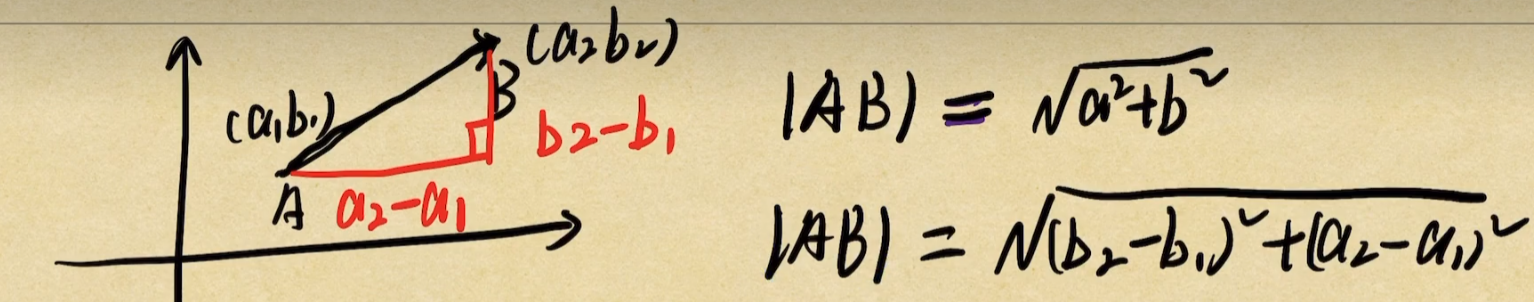 (a₂b₂)
B
(a₁b₁)
b₂-b₁
A
a₂-a₁
|AB| = √a²+b²
|AB| = √(b₂-b₁)²+(a₂-a₁)²